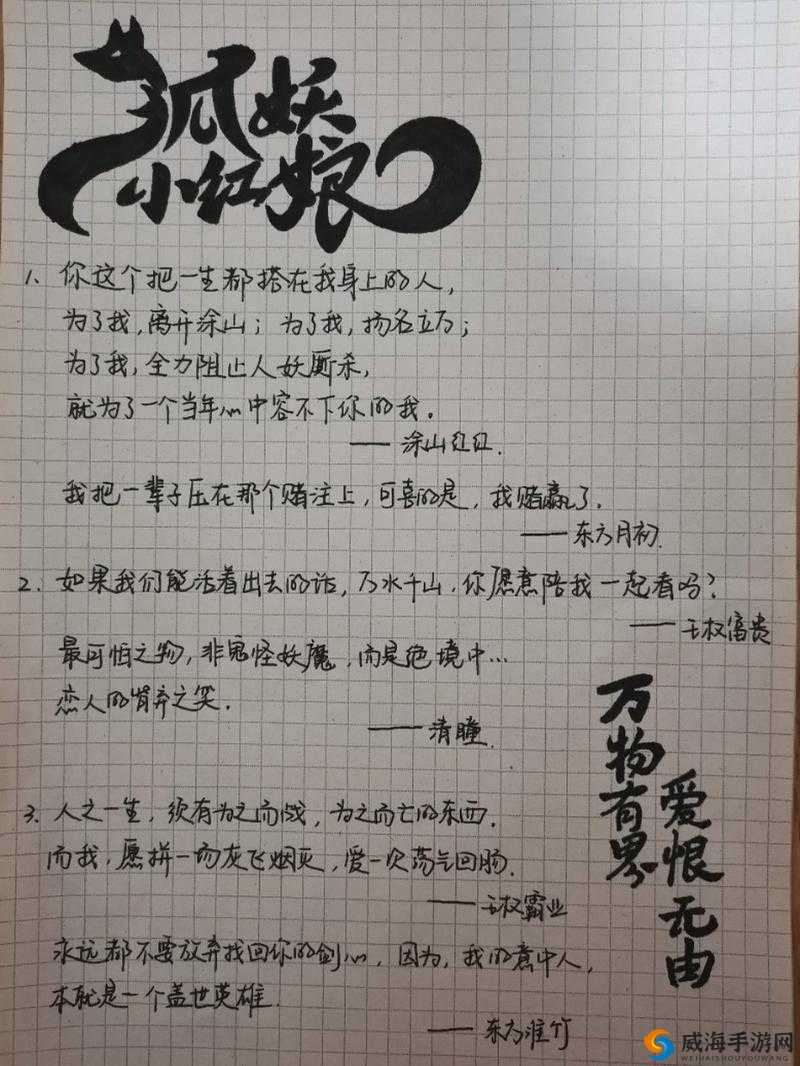 狐妖
小红娘
1、你这个把一生都搭在我身上的人，
为了我，离开涂山；为了我，扬名立万；
为了我，全力阻止人妖厮杀，
就为了一个当年心中容不下你的我。
——涂山红红.
我把一辈子压在那个赌注上，可喜的是，我赌赢了.
——东方月初.
2、如果我们能活着出去的话，万水千山，你愿意陪我一起看吗？
——王权富贵
最可怕之物，非鬼怪妖魔，而是绝境中...
恋人的背弃之笑.
——清瞳.
3、人之一生，须有为之而战，为之而亡的东西.
而我，愿拼一场灰飞烟灭，爱一次荡气回肠.
——王权霸业
永远都不要放弃找回你的剑心，因为，我的意中人，
本就是一个盖世英雄.
——东方淮竹
万物有界
爱恨无由
威海手游网
WEIHAISHOUYOUWANG